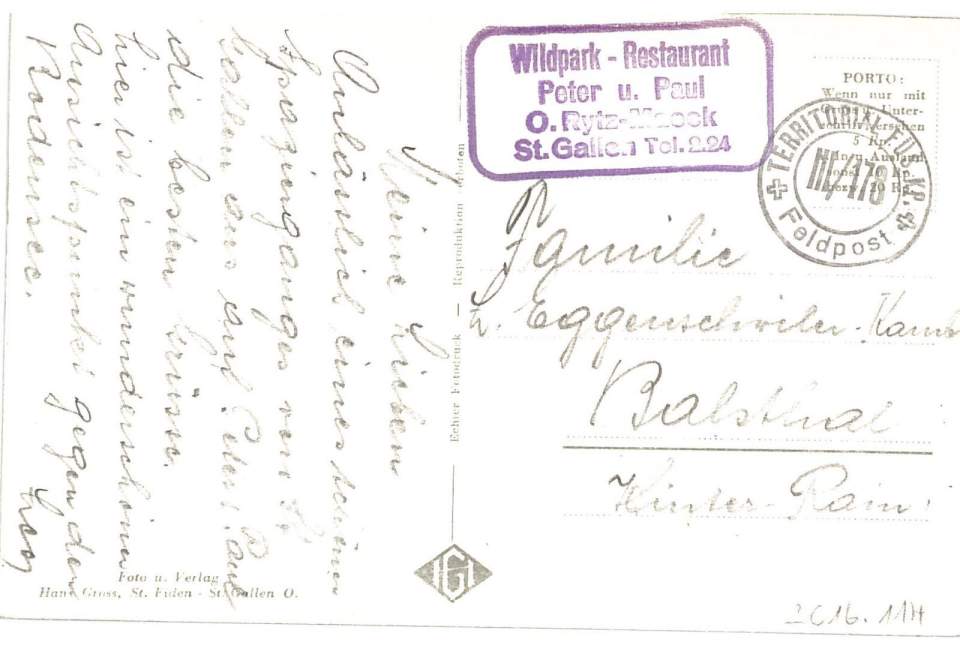 Meine Lieben
Anlässlich eines schönen
Spazierganges von St.
Gallen aus auf Peter & Paul
die besten Grüsse.
hier ist ein wunderschöner
Aussichtspunkt gegen den
Bodensee.
Foto u. Verlag
Hans Gross, St. Fiden - St. Gallen O.
Echter Fotodruck — Reproduktion verboten
Wildpark - Restaurant
Peter u. Paul
O. Rytz-
St. Gallen Tel. 2.24
PORTO:
Wenn nur mit
Gruss u. Unter-
schrift versehen
5 Rp.
Inl. u. Ausland
sonst 10 Rp.
bezw. 20 Rp.
TERRITORIAL FÜS. KP.
III/176
Feldpost
Familie
L. Eggenschwiler-
Balsthal
Hinter-Rain
G
16. 11H